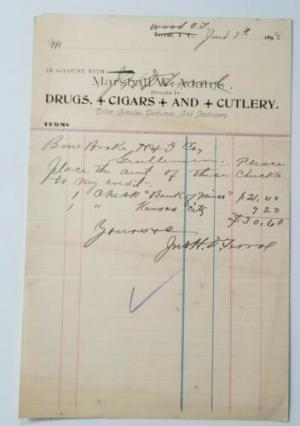 wood O.T.
Terral, I. T., June 7th 189
M
IN ACCOUNT WITH
Marshall W. Adams
DEALER IN
DRUGS, + CIGARS + AND + CUTLERY.
Toilet Articles, Perfumes And Stationery.
TERMS
Gentlemen:. Please
place the amt of these Checks
to my credit.
1 Check "Bank of " $21.40
1 " Kansas City 9 20
$30.60
Yours &c